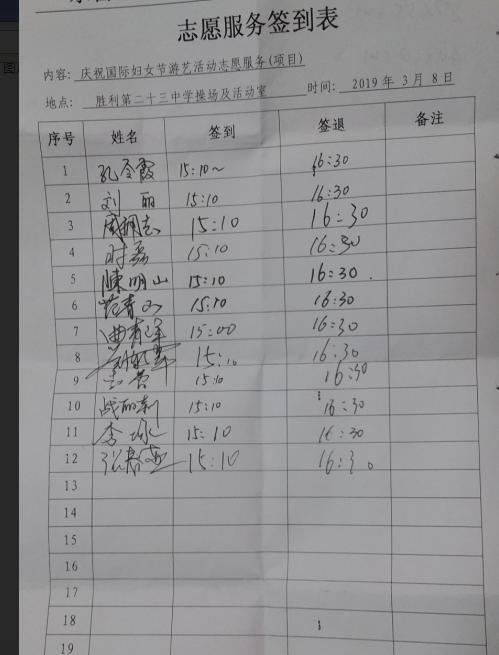 志愿服务签到表
内容: 庆祝国际妇女节游艺活动志愿服务(项目)
地点: 胜利第二十三中学操场及活动室 时间: 2019 年 3 月 8 日
序号 姓名 签到 签退 备注
1 孔令霞 15:10~ 16:30
2 刘丽 15:10 16:30
3 15:10 16:30
4 时磊 15:10 16:30
5 陈明山 15:10 16:30.
6 范青山 15:10 16:30
7 15:00 16:30
8 15:10 16:30
9 15:10 16:30
10 战丽莉 15:10 16:30
11 李 15:10 16:30
12 张春 15:10 16:30
13
14
15
16
17
18
19